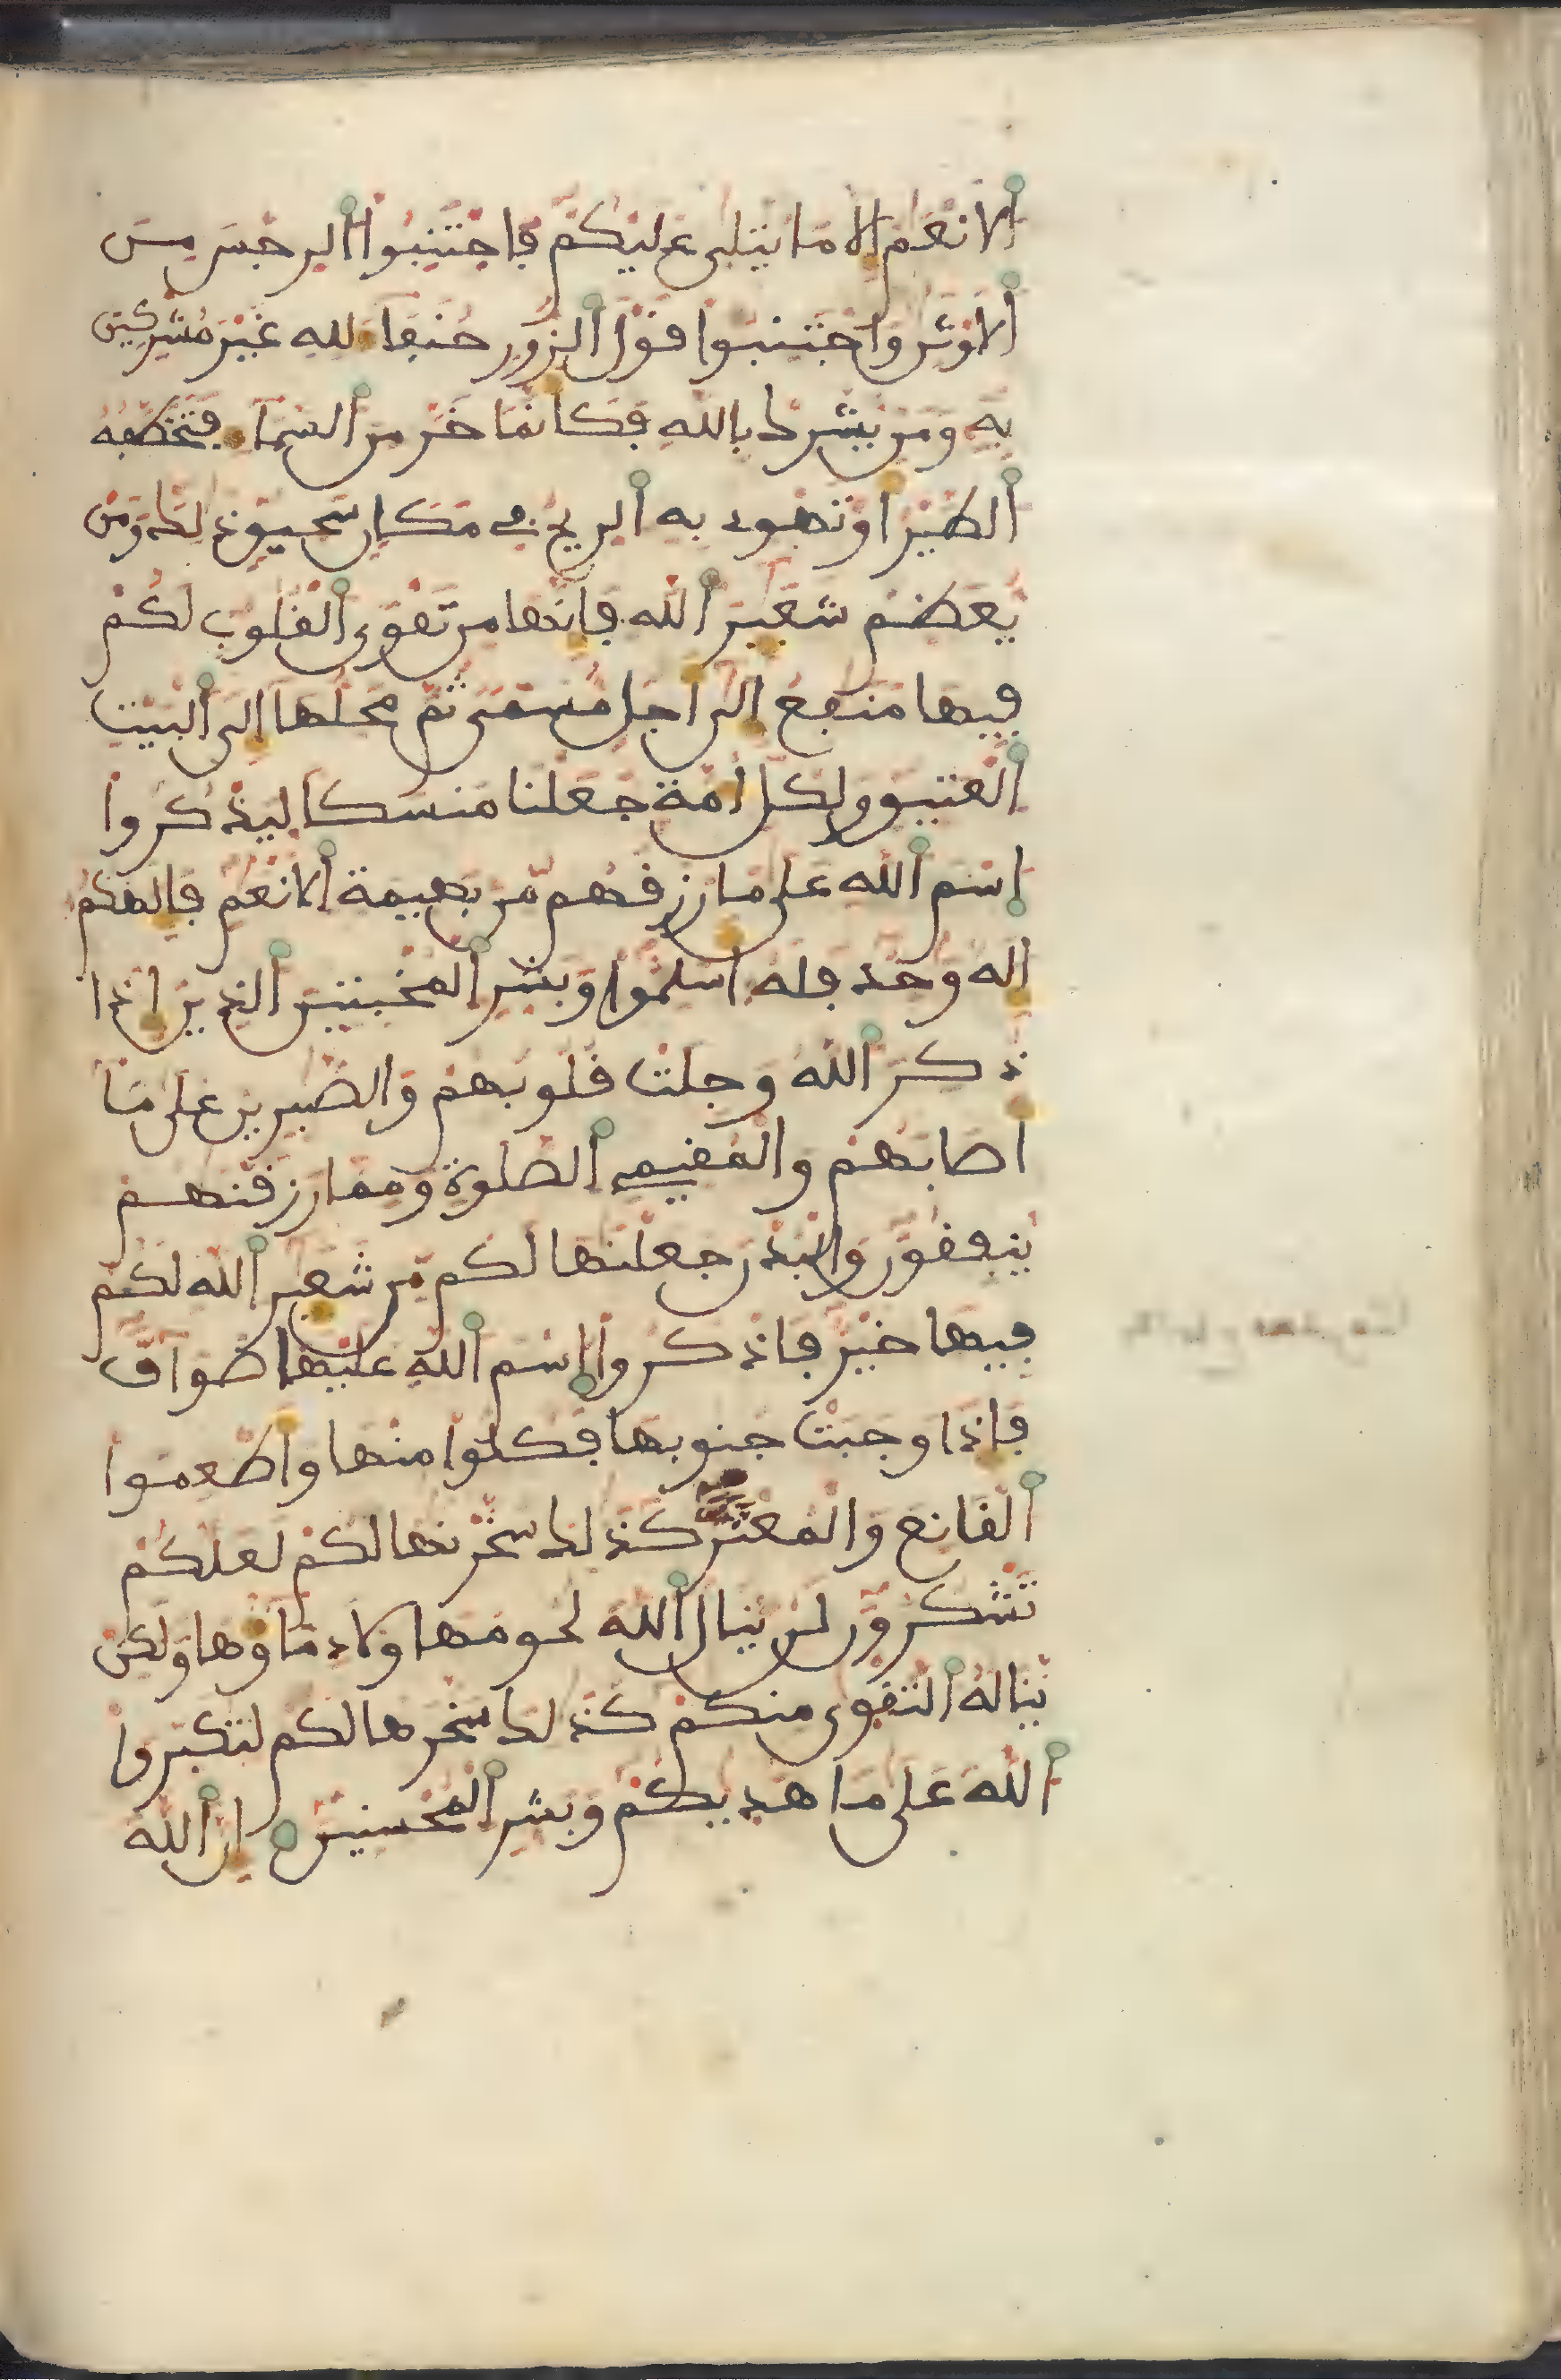 الانعم الا ما يتلى عليكم فاجتنبوا الرجس من
الاوثن واجتنبوا قول الزور حنفا لله غير مشركين
به ومن يشرك بالله فكانما خر من السما فتخطفه
الطير او تهوى به الريح في مكان سحيق ذلك ومن
يعظم شعير الله فانها من تقوى القلوب لكم
فيها منفع الى اجل مسمى ثم محلها الى البيت
العتيق ولكل امة جعلنا منسكا ليذكروا
اسم الله على ما رزقهم من بهيمة الانعم فالهكم
اله وحد فله اسلموا وبشر المخبتين الذين اذا
ذكر الله وجلت قلوبهم والصبرين على ما
اصابهم والمقيمي الصلوة ومما رزقنهم
ينفقون والبدن جعلنها لكم من شعير الله لكم
فيها خير فاذكروا اسم الله عليها صواف
فاذا وجبت جنوبها فكلوا منها واطعموا
القانع والمعتر كذلك سخرنها لكم لعلكم
تشكرون لن ينال الله لحومها ولا دماوها ولكن
يناله التقوى منكم كذلك سخرها لكم لتكبروا
الله على ما هديكم وبشر المحسنين ان الله